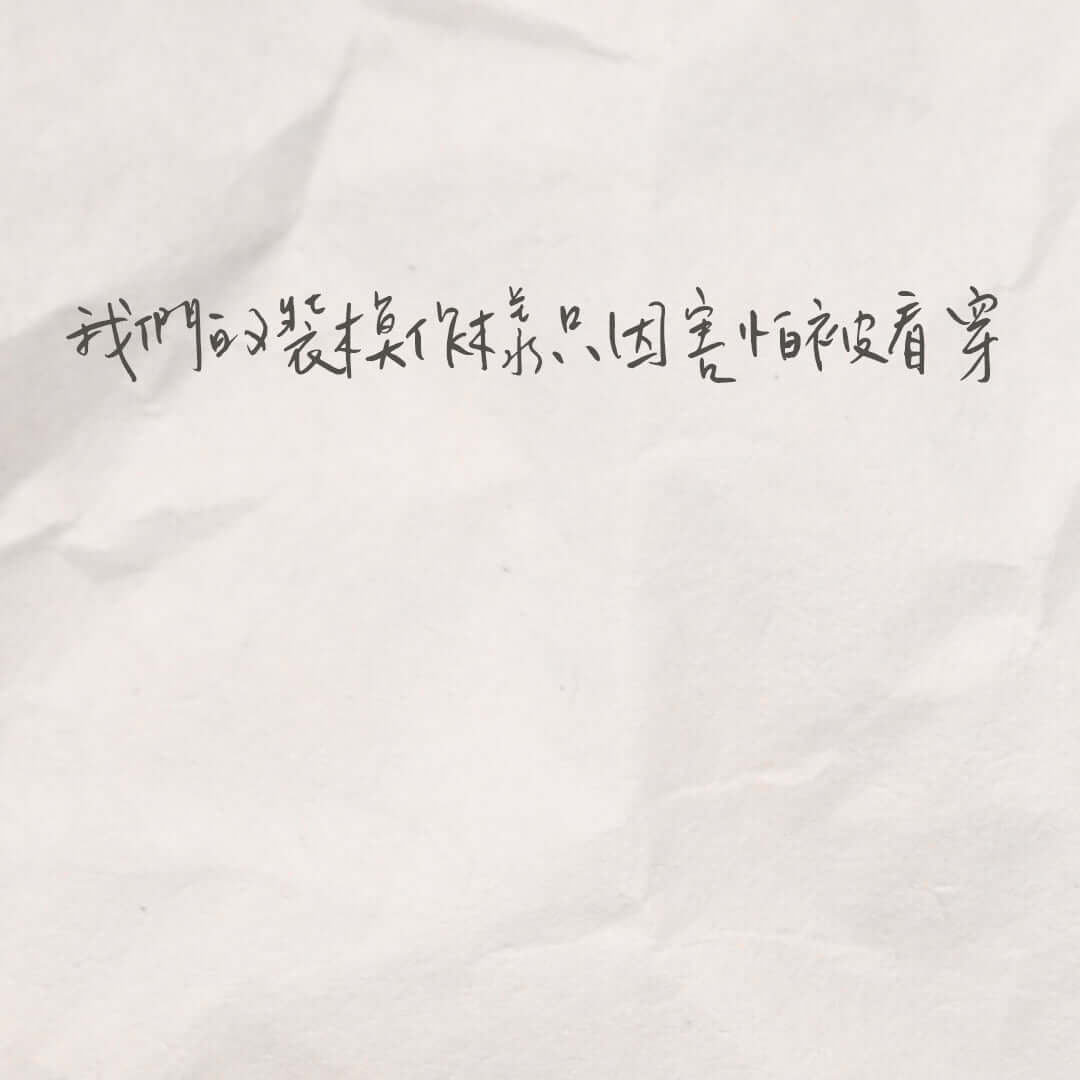 我們的裝模作樣只因害怕被看穿